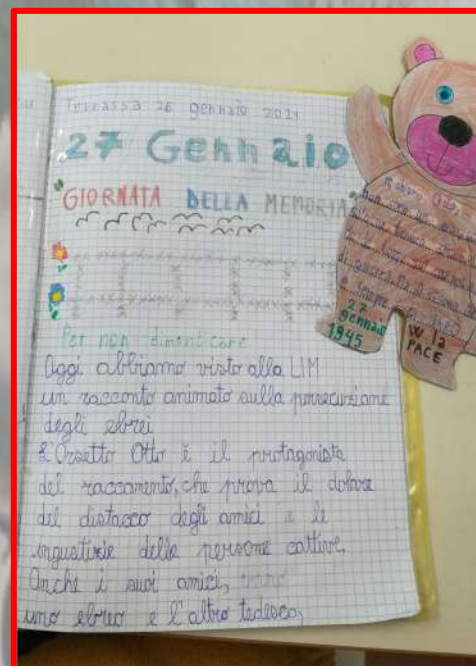 Terrassa 26 gennaio 2021
27 Gennaio
GIORNATA DELLA MEMORIA
Per non dimenticare
Oggi abbiamo visto alla LIM
un racconto animato sulla persecuzione
degli ebrei
L'Orsetto Otto è il protagonista
del raccomento, che prova il dolore
del distacco degli amici e le
ingiustizie delle persone cattive.
Anche i suoi amici,
uno ebreo e l'altro tedesco,
di guerra
27
gennaio
1945
W la
PACE